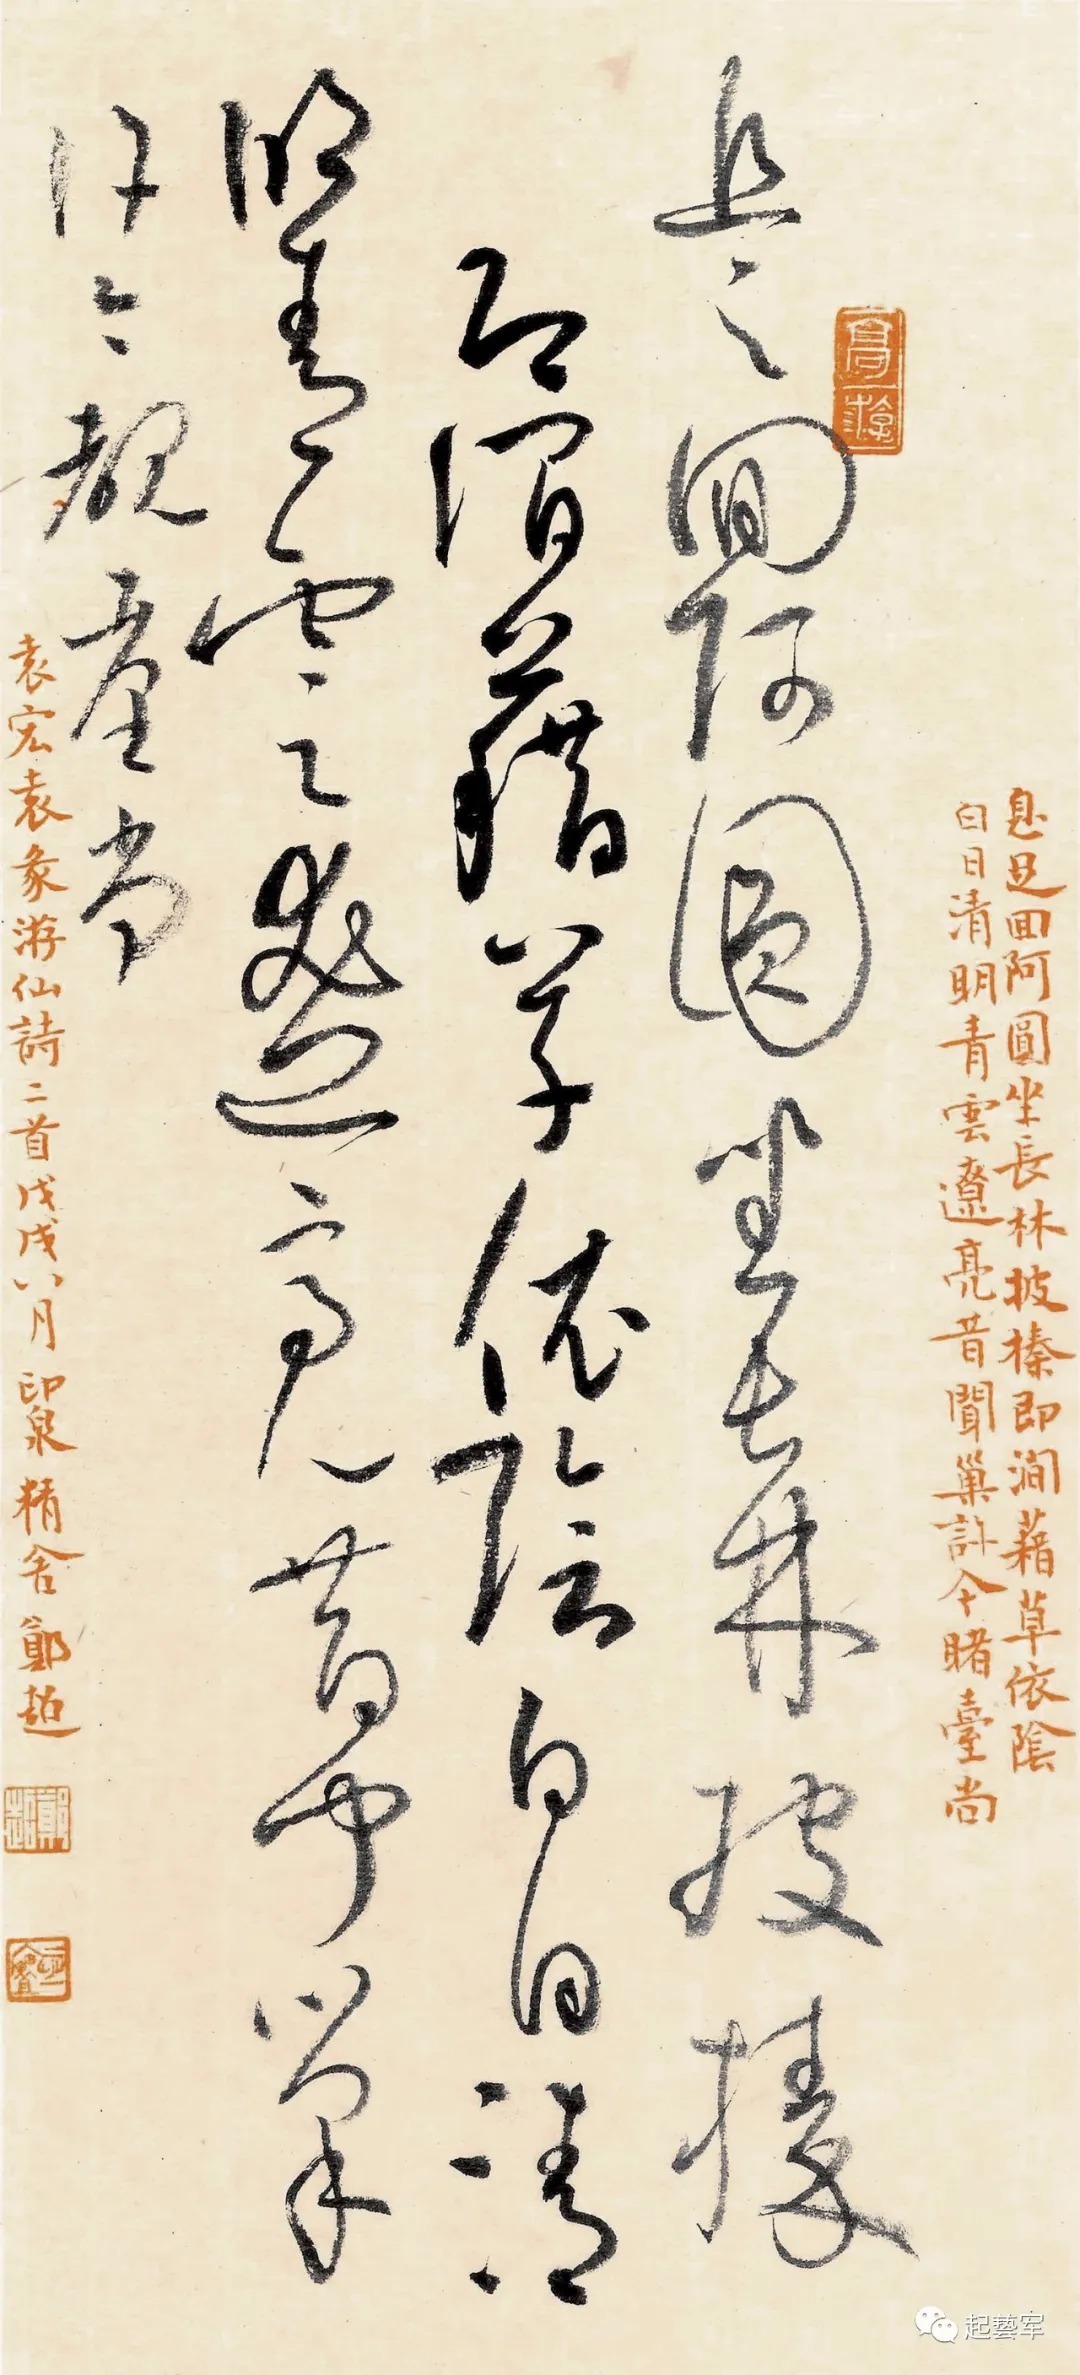 息足回阿圓坐長林披榛即澗藉草依陰
白日清明青雲遼亮昔聞巢許今睹臺尚
息足回阿圓坐長林披榛
即澗藉草依陰白日清
明青雲遼亮昔聞巢
許今覩臺尚
袁宏袁彖游仙詩二首戊戌八月印泉精舍鄭超
鄭超
起藝军